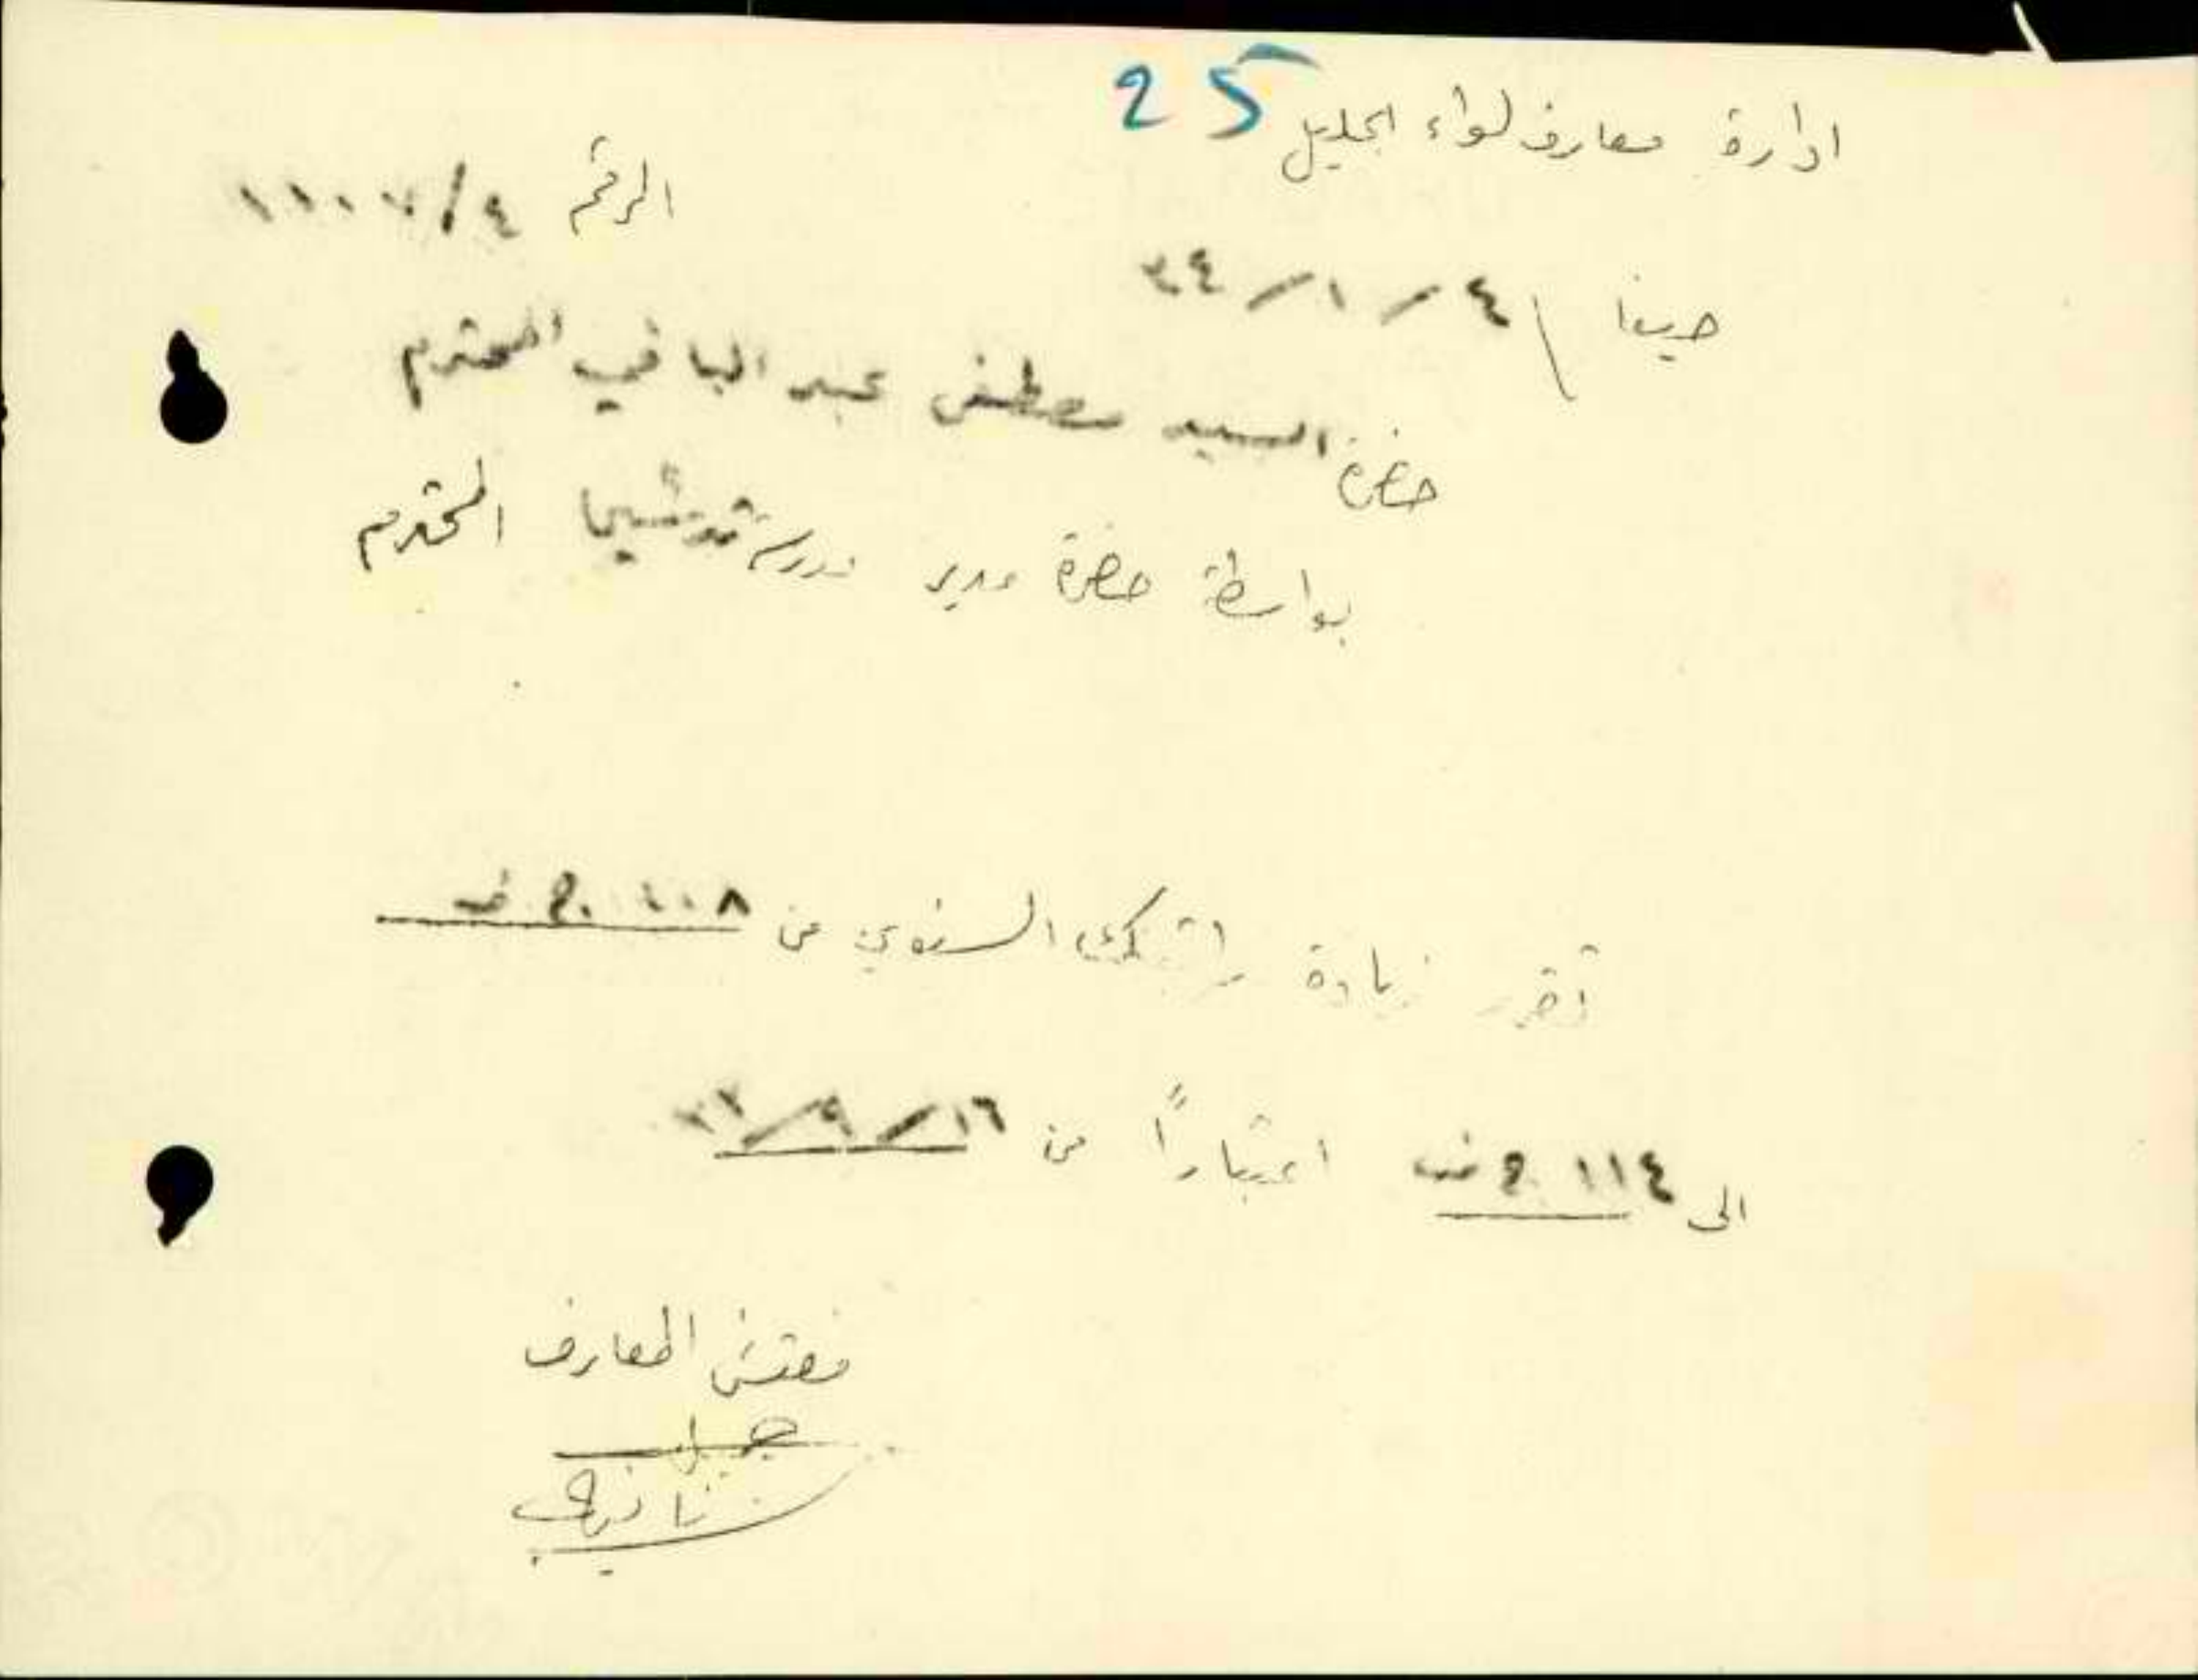 25
ادارة معارف لواء الجليل
الرقم ٤/١١٠٠٧
حيفا ٤/١/٣٤
حضرة السيد مصطفى عبد الباقي المحترم
بواسطة حضرة مدير مدرسة ترشيحا المحترم
تقرر زيادة راتبكم السنوي من ١٠٨ ج. ف
الى ١١٤ ج. ف اعتباراً من ١٦/٩/٣٣
مفتش المعارف
جميل